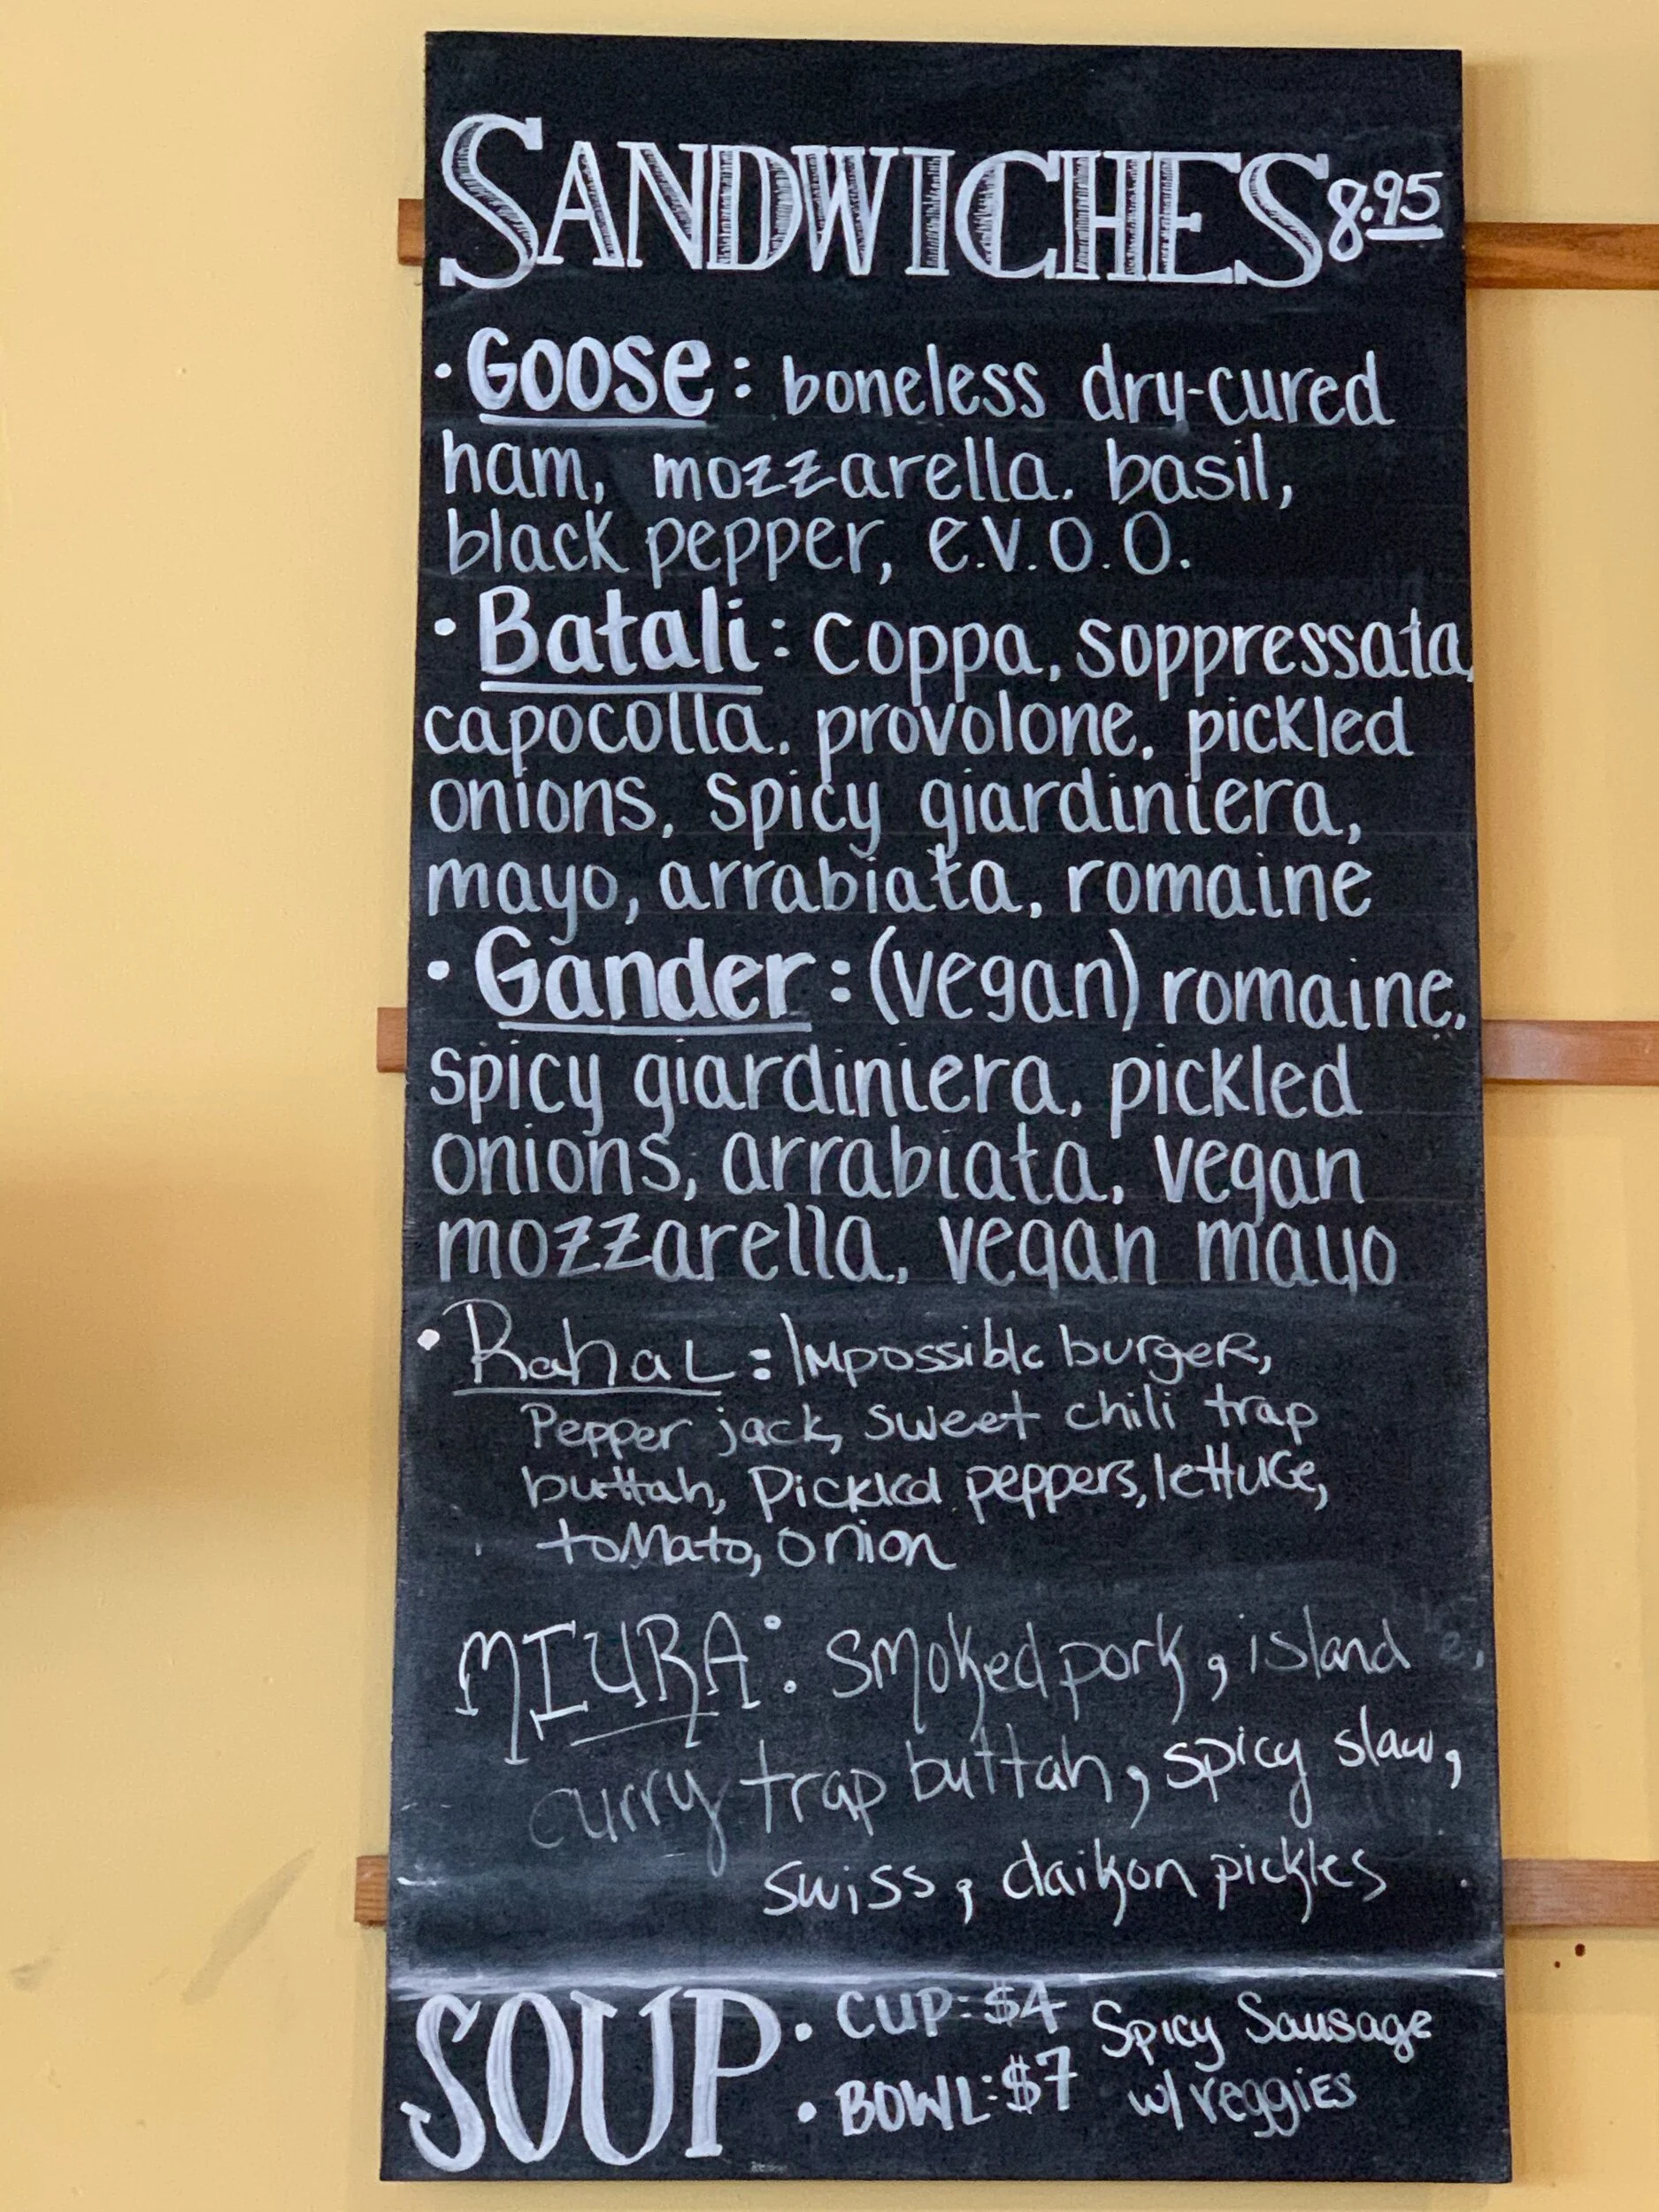 SANDWICHES 8.95
• Goose: boneless dry-cured
ham, mozzarella, basil,
black pepper, e.v.o.o.
• Batali: coppa, soppressata,
capocolla, provolone, pickled
onions, spicy giardiniera,
mayo, arrabiata, romaine
• Gander: (vegan) romaine,
spicy giardiniera, pickled
onions, arrabiata, vegan
mozzarella, vegan mayo
• Rahal: Impossible burger,
Pepper jack, sweet chili trap
buttah, Pickled peppers, lettuce,
tomato, onion
MIURA: smoked pork, island
curry trap buttah, spicy slaw,
swiss, daikon pickles
SOUP • CUP: $4 Spicy Sausage
• BOWL: $7 w/ veggies